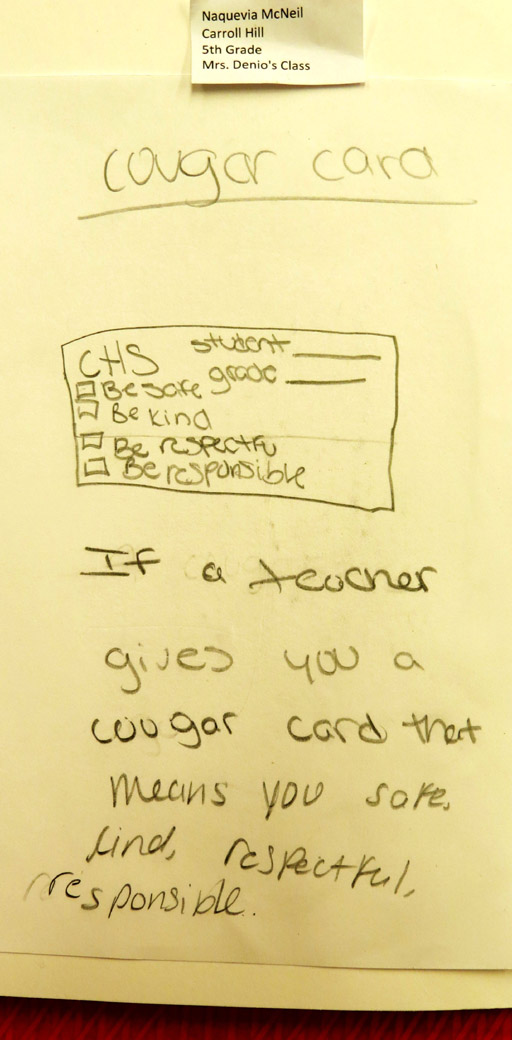 Naquevia McNeil
Carroll Hill
5th Grade
Mrs. Denio's Class
cougar card
CHS student
grade
Be safe
Be kind
Be respectfu
Be responsible
If a teacher
gives you a
cougar card that
means you safe,
kind, respectful,
responsible.